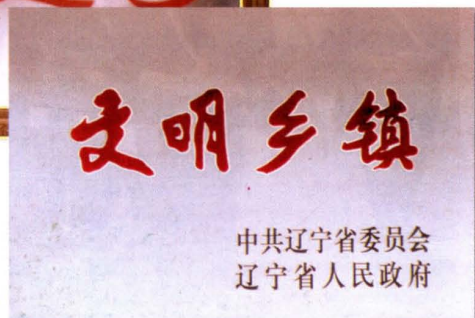 文明乡镇
中共辽宁省委员会
辽宁省人民政府